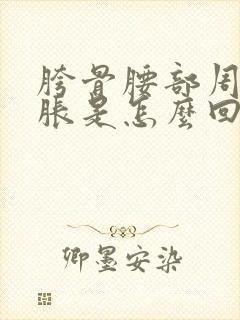 胯骨腰部周
脹是怎麼回
卿墨安染